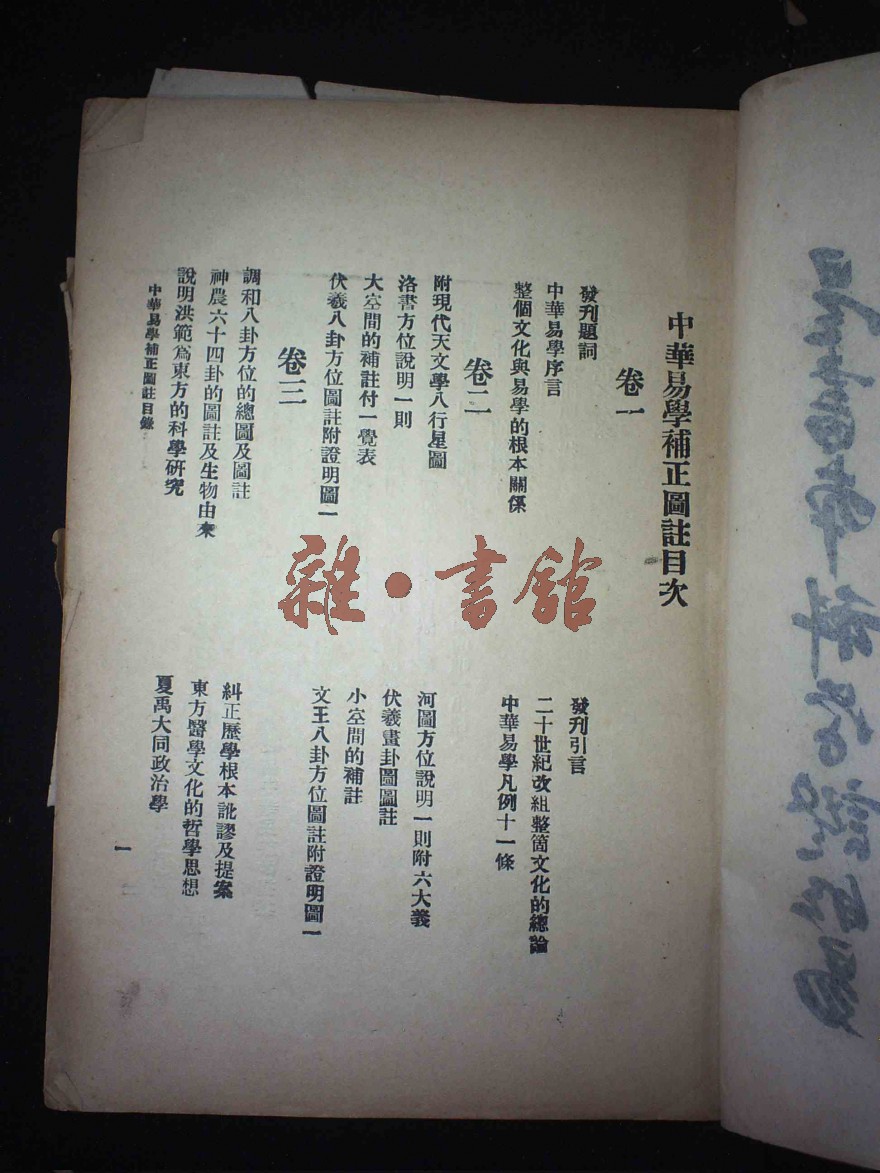 中華易學補正圖註目次
卷一
發刊題詞
發刊引言
中華易學序言
二十世紀改組整箇文化的總論
整個文化與易學的根本關係
中華易學凡例十一條
卷二
附現代天文學八行星圖
河圖方位說明一則附六大義
洛書方位說明一則
伏羲畫卦圖圖註
大空間的補註付一覽表
小空間的補註
伏羲八卦方位圖註附證明圖一
文王八卦方位圖註附證明圖一
卷三
調和八卦方位的總圖及圖註
糾正歷學根本訛謬及提案
神農六十四卦的圖註及生物由來
東方醫學文化的哲學思想
說明洪範爲東方的科學研究
夏禹大同政治學
中華易學補正圖註目錄
一
雜·書館